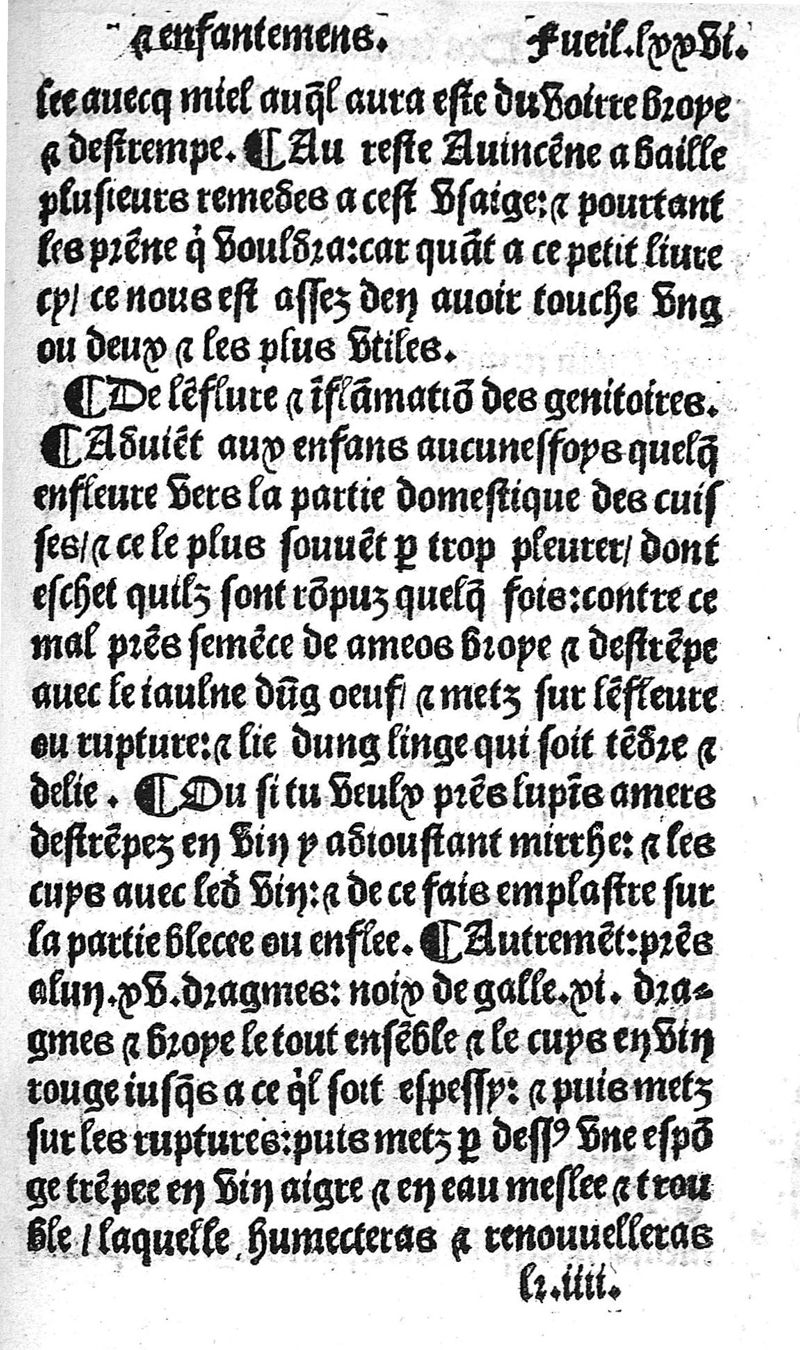 ⁊ enfantemens. Fueil.lxxvi.
see auecq miel auq̃l aura este du voirre broye
⁊ destrempe. ¶Au reste Auincẽne a baille
plusieurs remedes a cest vsaige:⁊ pourtant
les prẽne q̇ vouldra:car quãt a ce petit liure
cy/ ce nous est assez den auoir touche vng
ou deux ⁊ les plus vtiles.
¶De lẽflure ⁊ ĩflãmatiõ des genitoires.
¶Aduiẽt aux enfans aucunesfoys quelq̃
enfleure vers la partie domestique des cuis
ses/⁊ ce le plus souuẽt ꝑ trop pleurer/ dont
eschet quilz sont rõpuz quelq̃ fois:contre ce
mal prẽs semẽce de ameos broye ⁊ destrẽpe
auec le iaulne dũg oeuf/ ⁊ metz sur lẽfleure
ou rupture:⁊ lie dung linge qui soit tẽdre ⁊
delie. ¶Ou si tu veulx prẽs lupĩs amers
destrẽpez en vin y adioustant mirrhe: ⁊ les
cuys auec led̃ vin:⁊ de ce fais emplastre sur
la partie blecee ou enflee. ¶Autremẽt:prẽs
alun.xv.dragmes: noix de galle.xi. dra⸗
gmes ⁊ broye le tout ensẽble ⁊ le cuys en vin
rouge iusq̃s a ce q̇l soit espessy: ⁊ puis metz
sur les ruptures:puis metz ꝑ dessꝰ vne espõ
ge trẽpee en vin aigre ⁊ en eau meslee ⁊ trou
ble / laquelle humecteras ⁊ renouuelleras